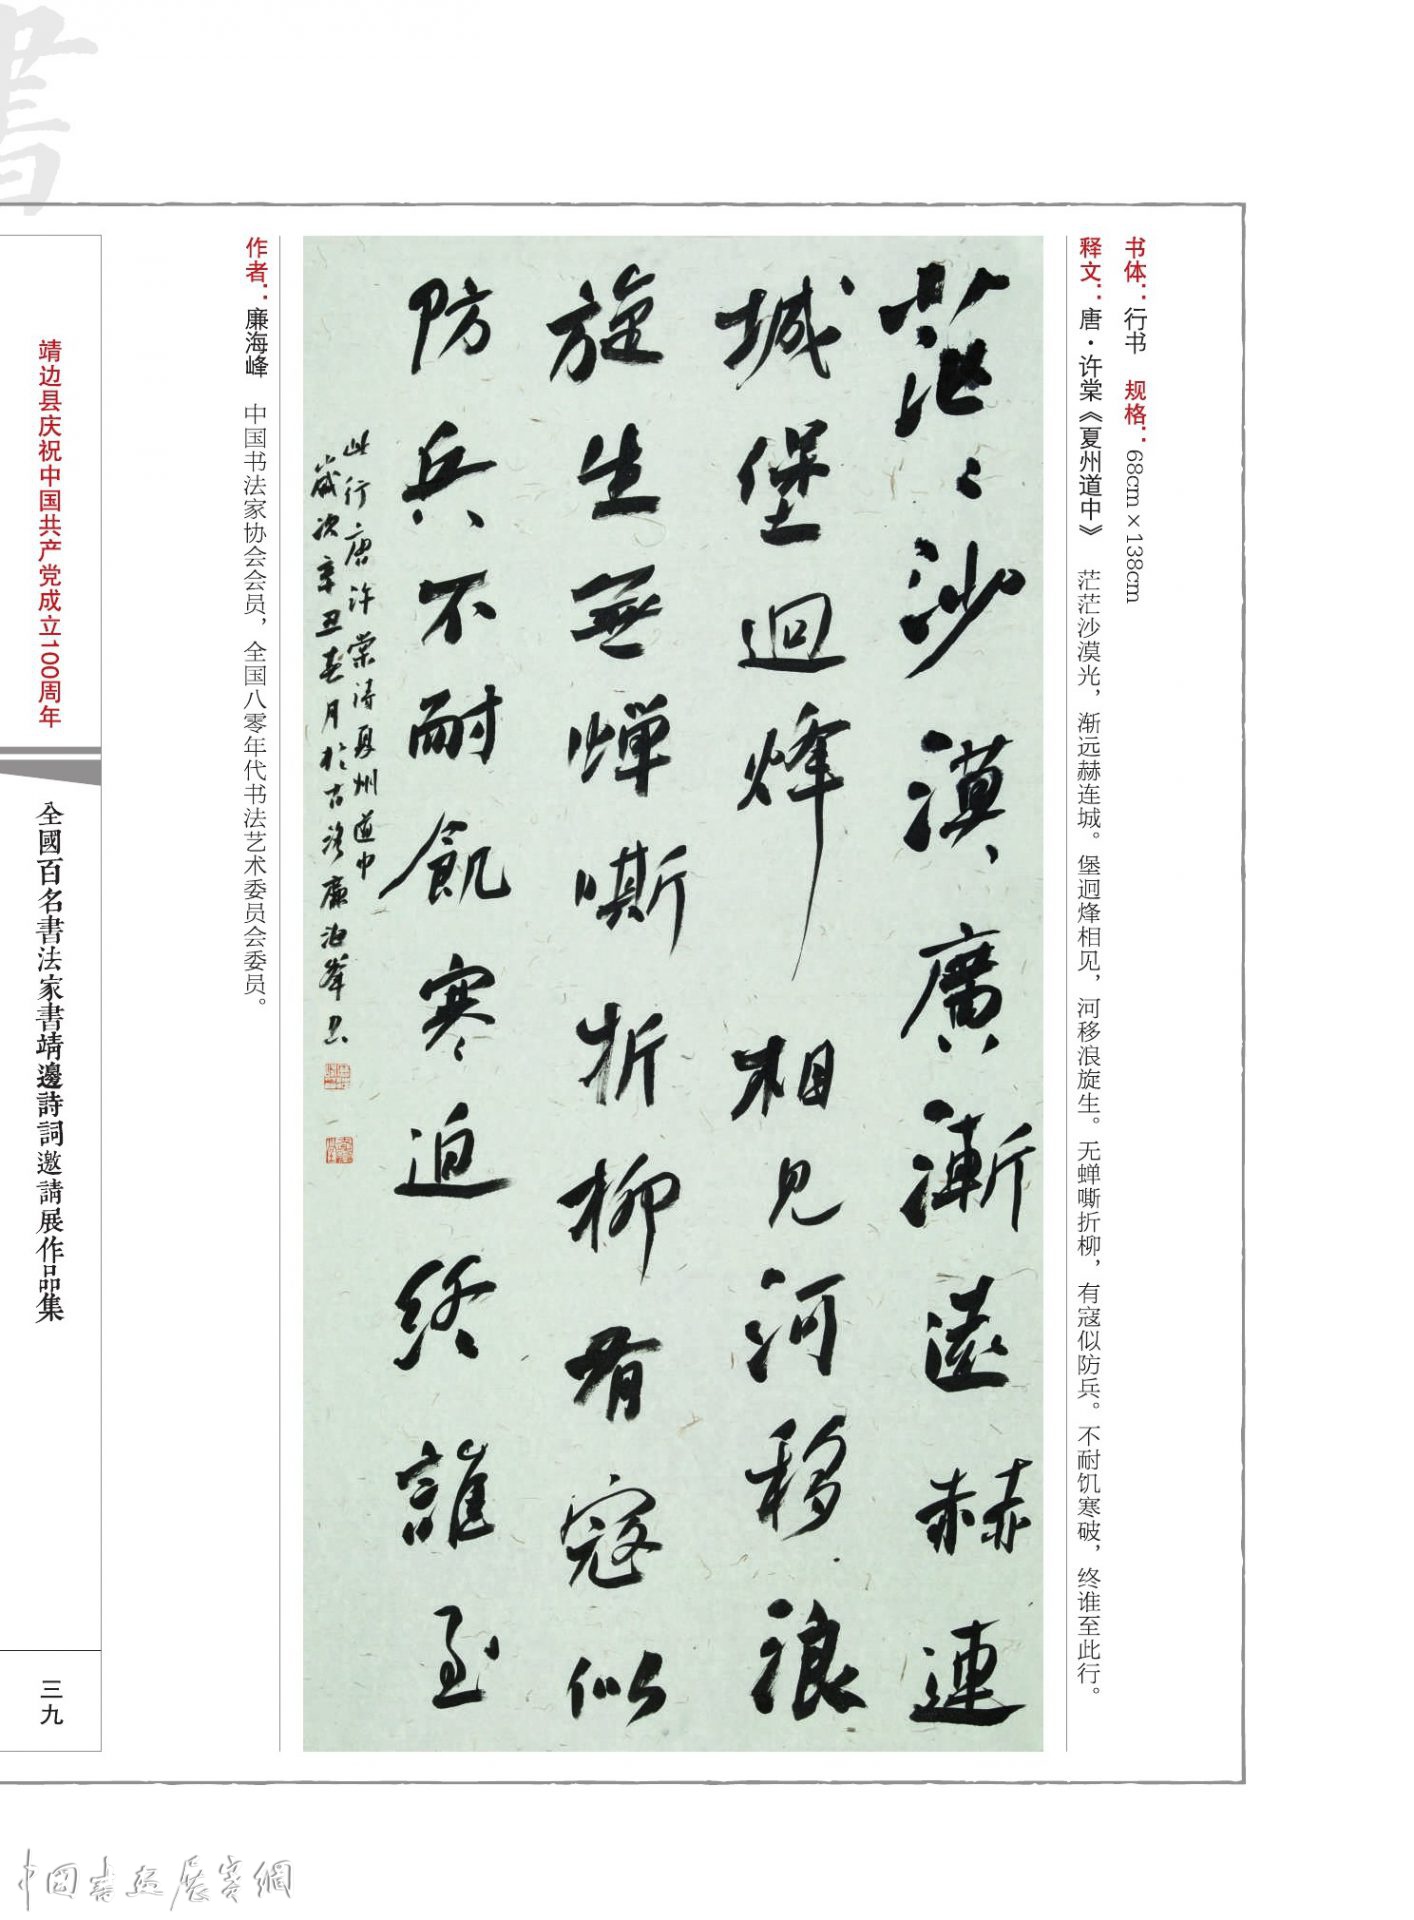 書
书体：行书　规格：68cm×138cm
释文：唐·许棠《夏州道中》　茫茫沙漠光，渐远赫连城。堡迥烽相见，河移浪旋生。无蝉嘶折柳，有寇似防兵。不耐饥寒破，终谁至此行。
茫〻沙漠廣漸遠赫連
城堡迥烽相見河移浪
旋生無蟬嘶折柳有寇似
防兵不耐飢寒迫終誰至
此行唐許棠詩夏州道中
歲次辛丑春月於古洛廉海峰書
作者：廉海峰　中国书法家协会会员，全国八零年代书法艺术委员会委员。
靖边县庆祝中国共产党成立100周年
全國百名書法家書靖邊詩詞邀請展作品集
三九
中國書畫展賽網